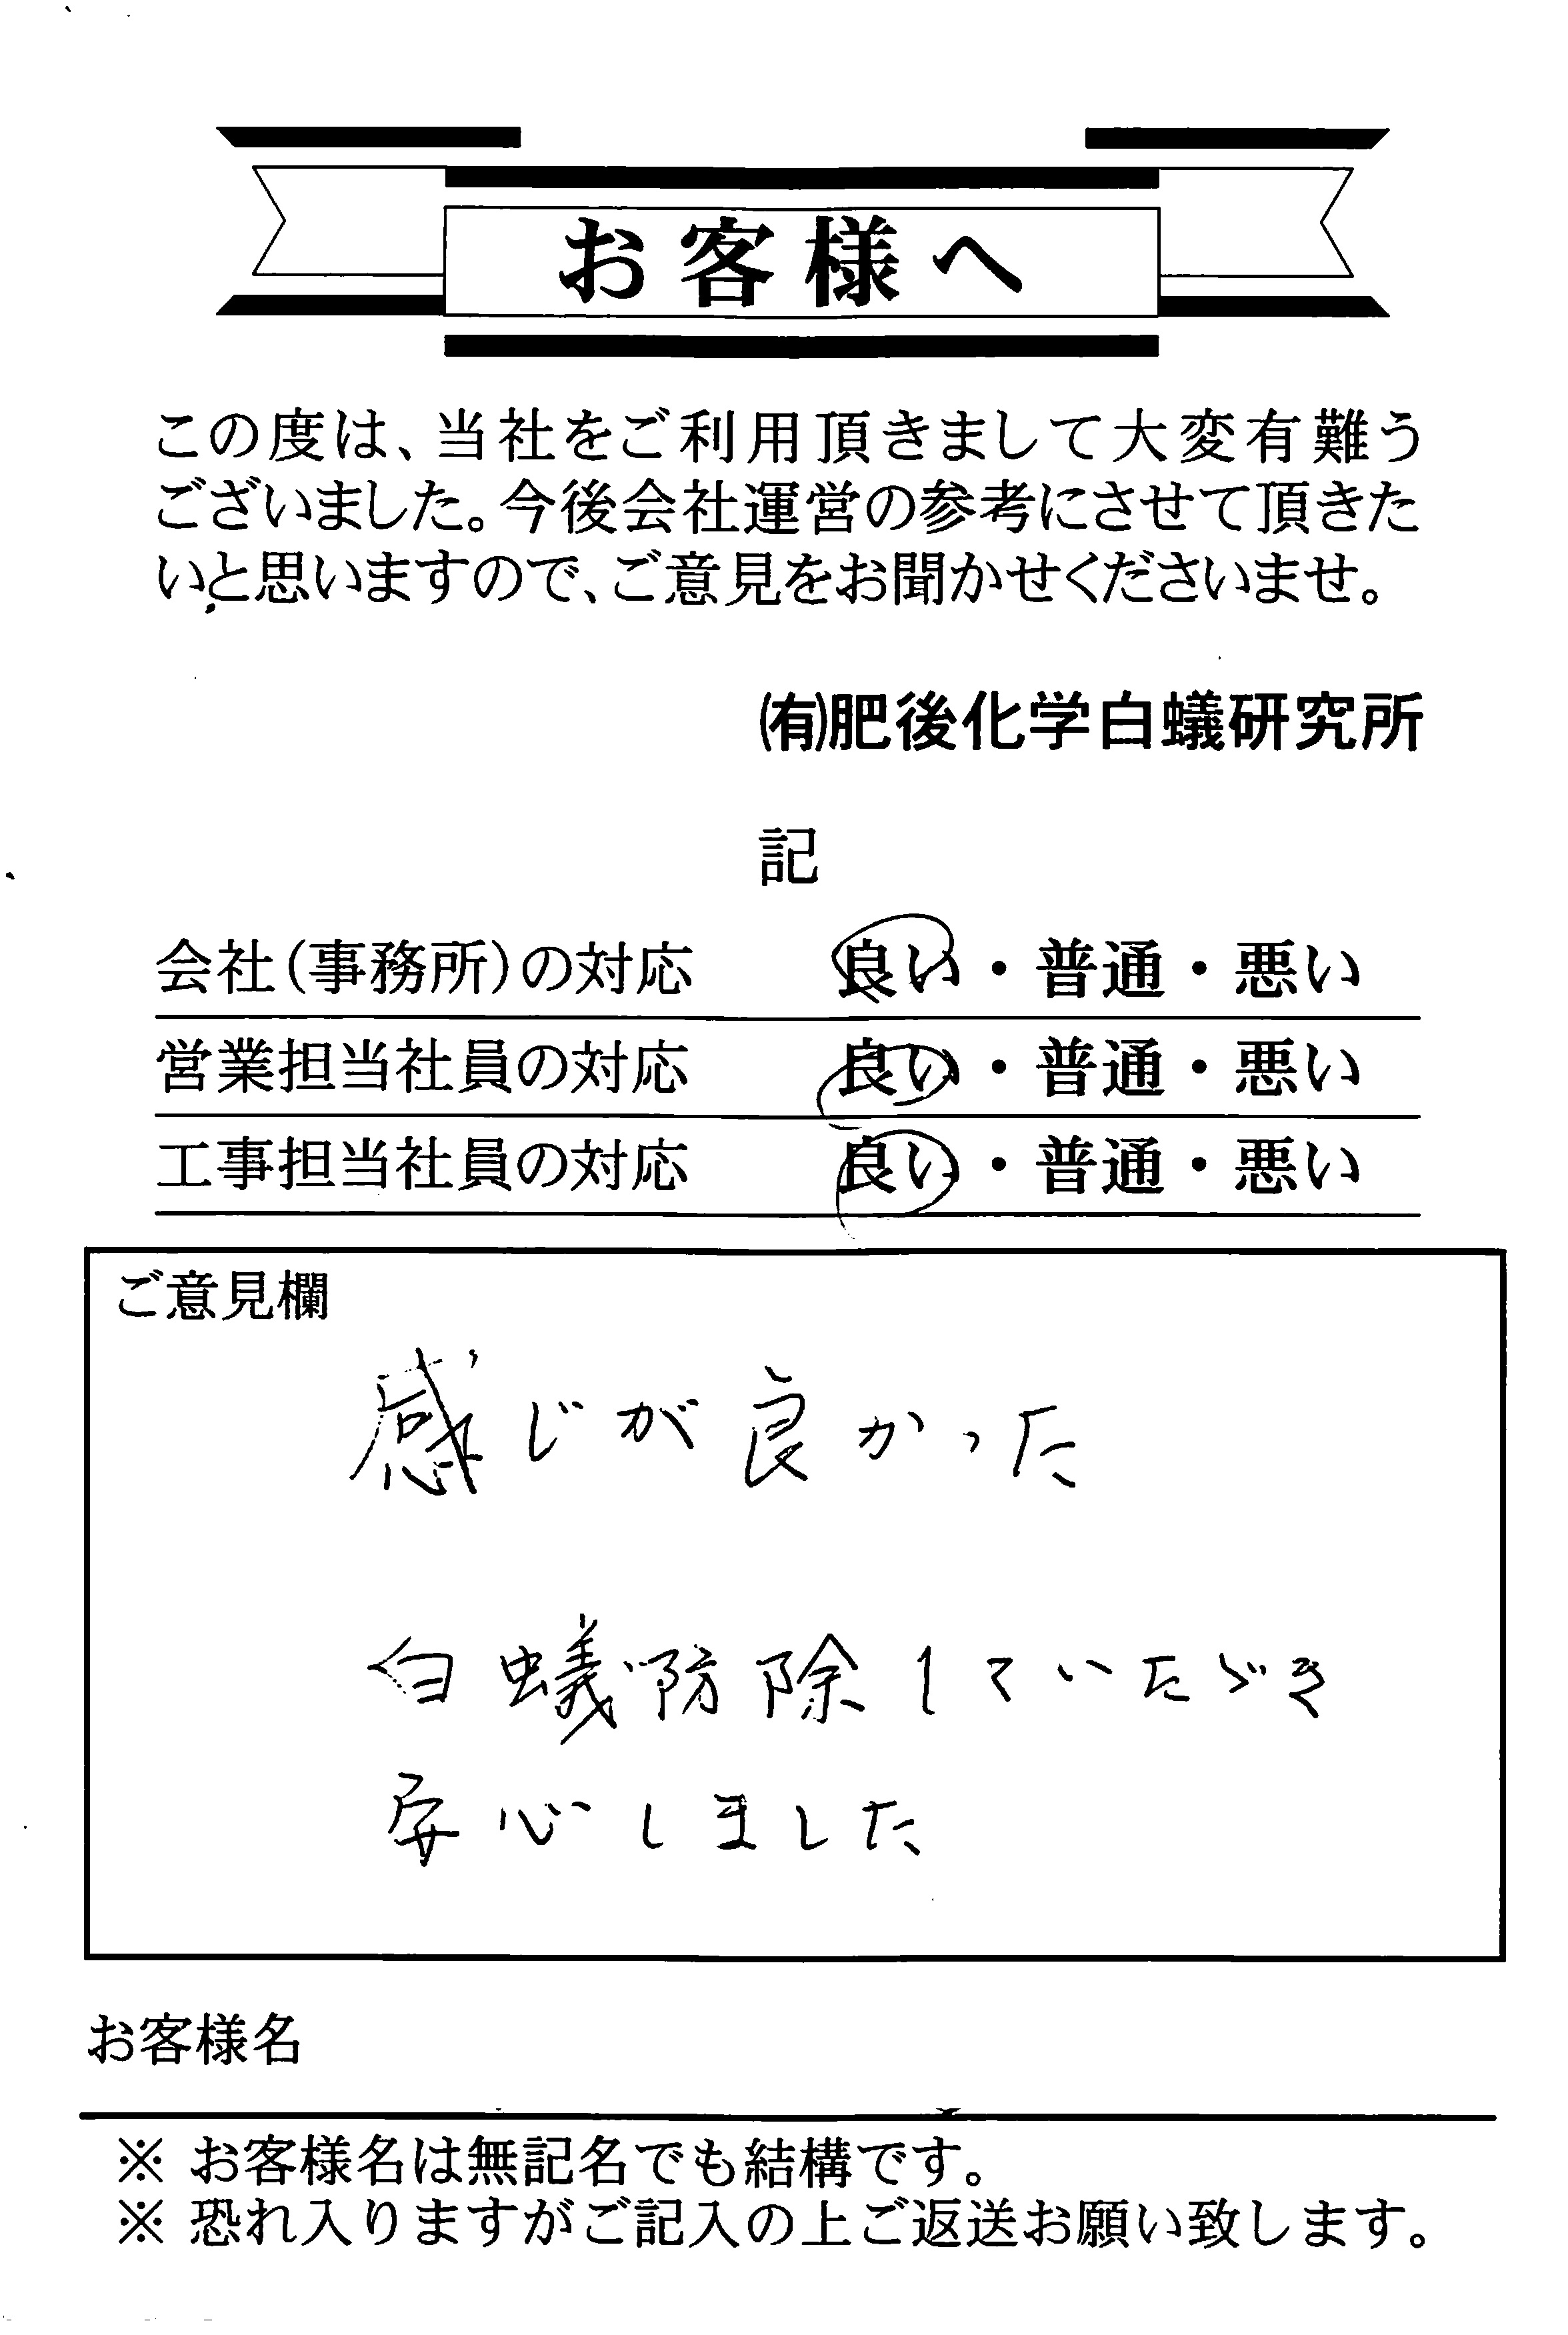 お客様へ
この度は、当社をご利用頂きまして大変有難う
ございました。今後会社運営の参考にさせて頂きた
いと思いますので、ご意見をお聞かせくださいませ。
㈲肥後化学白蟻研究所
記
会社(事務所)の対応 良い・普通・悪い
営業担当社員の対応 良い・普通・悪い
工事担当社員の対応 良い・普通・悪い
ご意見欄
感じが良かった
白蟻防除していたゞき
安心しました
お客様名
※ お客様名は無記名でも結構です。
※ 恐れ入りますがご記入の上ご返送お願い致します。